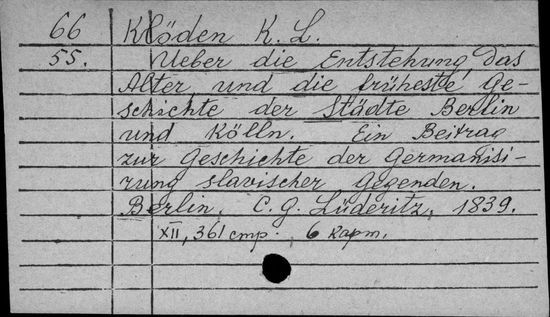 66 Klöden K. L.
55. Ueber die Entstehung, das
Alter und die früheste Ge-
schichte der Städte Berlin
und Kölln. Ein Beitrag
zur Geschichte der Germanisi-
rung slavischer Gegenden.
Berlin, C. G. Lüderitz, 1839.
XII, 361 стр. 6 карт.